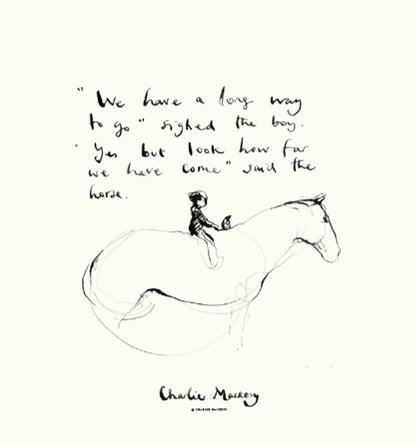 "We have a long way
to go" sighed the boy.
"Yes but look how far
we have come" said the
horse.
Charlie Mackesy
© CHARLIE MACKESY